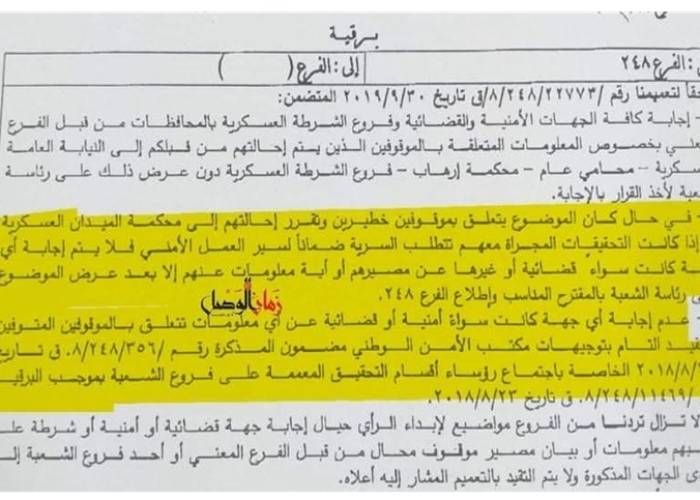 برقية
: الفرع ٢٤٨ إلى: الفرع ( )
لتعميمنا رقم /٨/٢٤٨/٢٢٧٧٣/ق تاريخ ٢٠١٩/٩/٣٠ المتضمن:
- إجابة كافة الجهات الأمنية والقضائية وفروع الشرطة العسكرية بالمحافظات من قبل الفرع
بخصوص المعلومات المتعلقة بالموقوفين الذين يتم إحالتهم من قبلكم إلى النيابة العامة
- محامي عام - محكمة إرهاب - فروع الشرطة العسكرية دون عرض ذلك على رئاسة
لأخذ القرار بالإجابة.
في حال كان الموضوع يتعلق بموقوفين خطيرين وتقرر إحالتهم إلى محكمة الميدان العسكرية
إذا كانت التحقيقات المجراة معهم تتطلب السرية ضماناً لسير العمل الأمني فلا يتم إجابة أي
كانت سواء قضائية أو غيرها عن مصيرهم أو أية معلومات عنهم إلا بعد عرض الموضوع
رئاسة الشعبة بالمقترح المناسب وإطلاع الفرع ٢٤٨.
زمان الوصل
عدم إجابة أي جهة كانت سواءً أمنية أو قضائية عن أي معلومات تتعلق بالموقوفين المتوفين
التام بتوجيهات مكتب الأمن الوطني مضمون المذكرة رقم /٨/٢٤٨/٣٥٦. ق تاريخ
الخاصة باجتماع رؤساء أقسام التحقيق المعممة على فروع الشعبة بموجب
٨/٢٤٨/١١٤٦٩. ق تاريخ ٢٠١٨/٨/٢٣.
لا تزال تردنا من الفروع مواضيع لإبداء الرأي حيال إجابة جهة قضائية أو أمنية أو شرطة
معلومات أو بيان مصير موقوف محال من قبل الفرع المعني أو أحد فروع الشعبة إلى
الجهات المذكورة ولا يتم التقيد بالتعميم المشار إليه أعلاه.